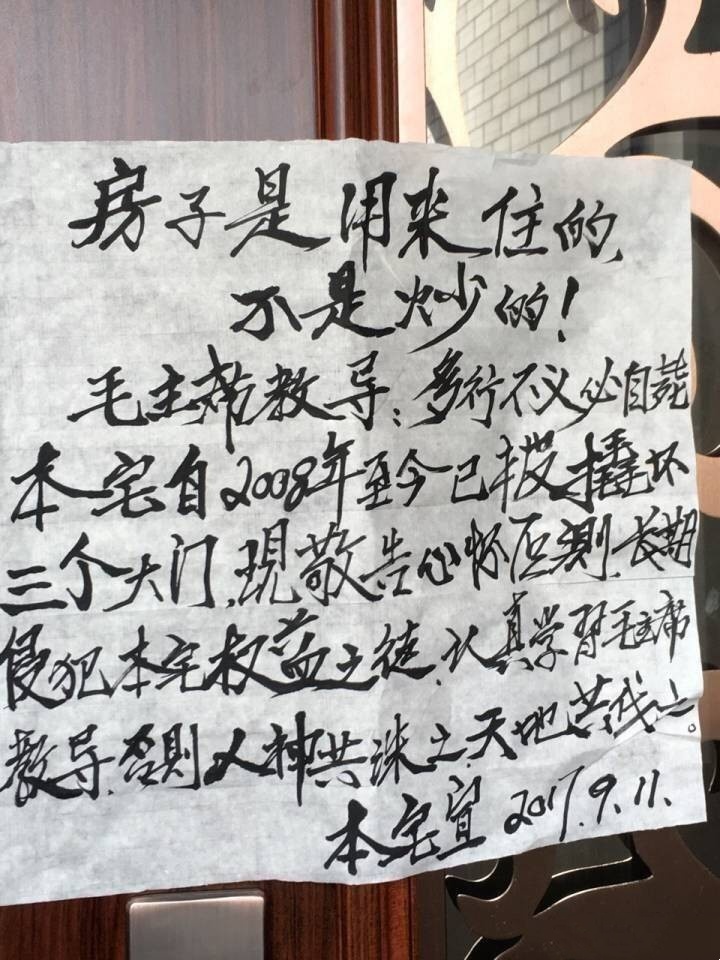 房子是用来住的,
不是炒的!
毛主席教导:多行不义必自毙
本宅自2008年至今已被撬坏
三个大门,现敬告心怀叵测,长期
侵犯本宅权益之徒,认真学习毛主席
教导,否则人神共诛之,天地共伐之。
本宅宣 2017.9.11.